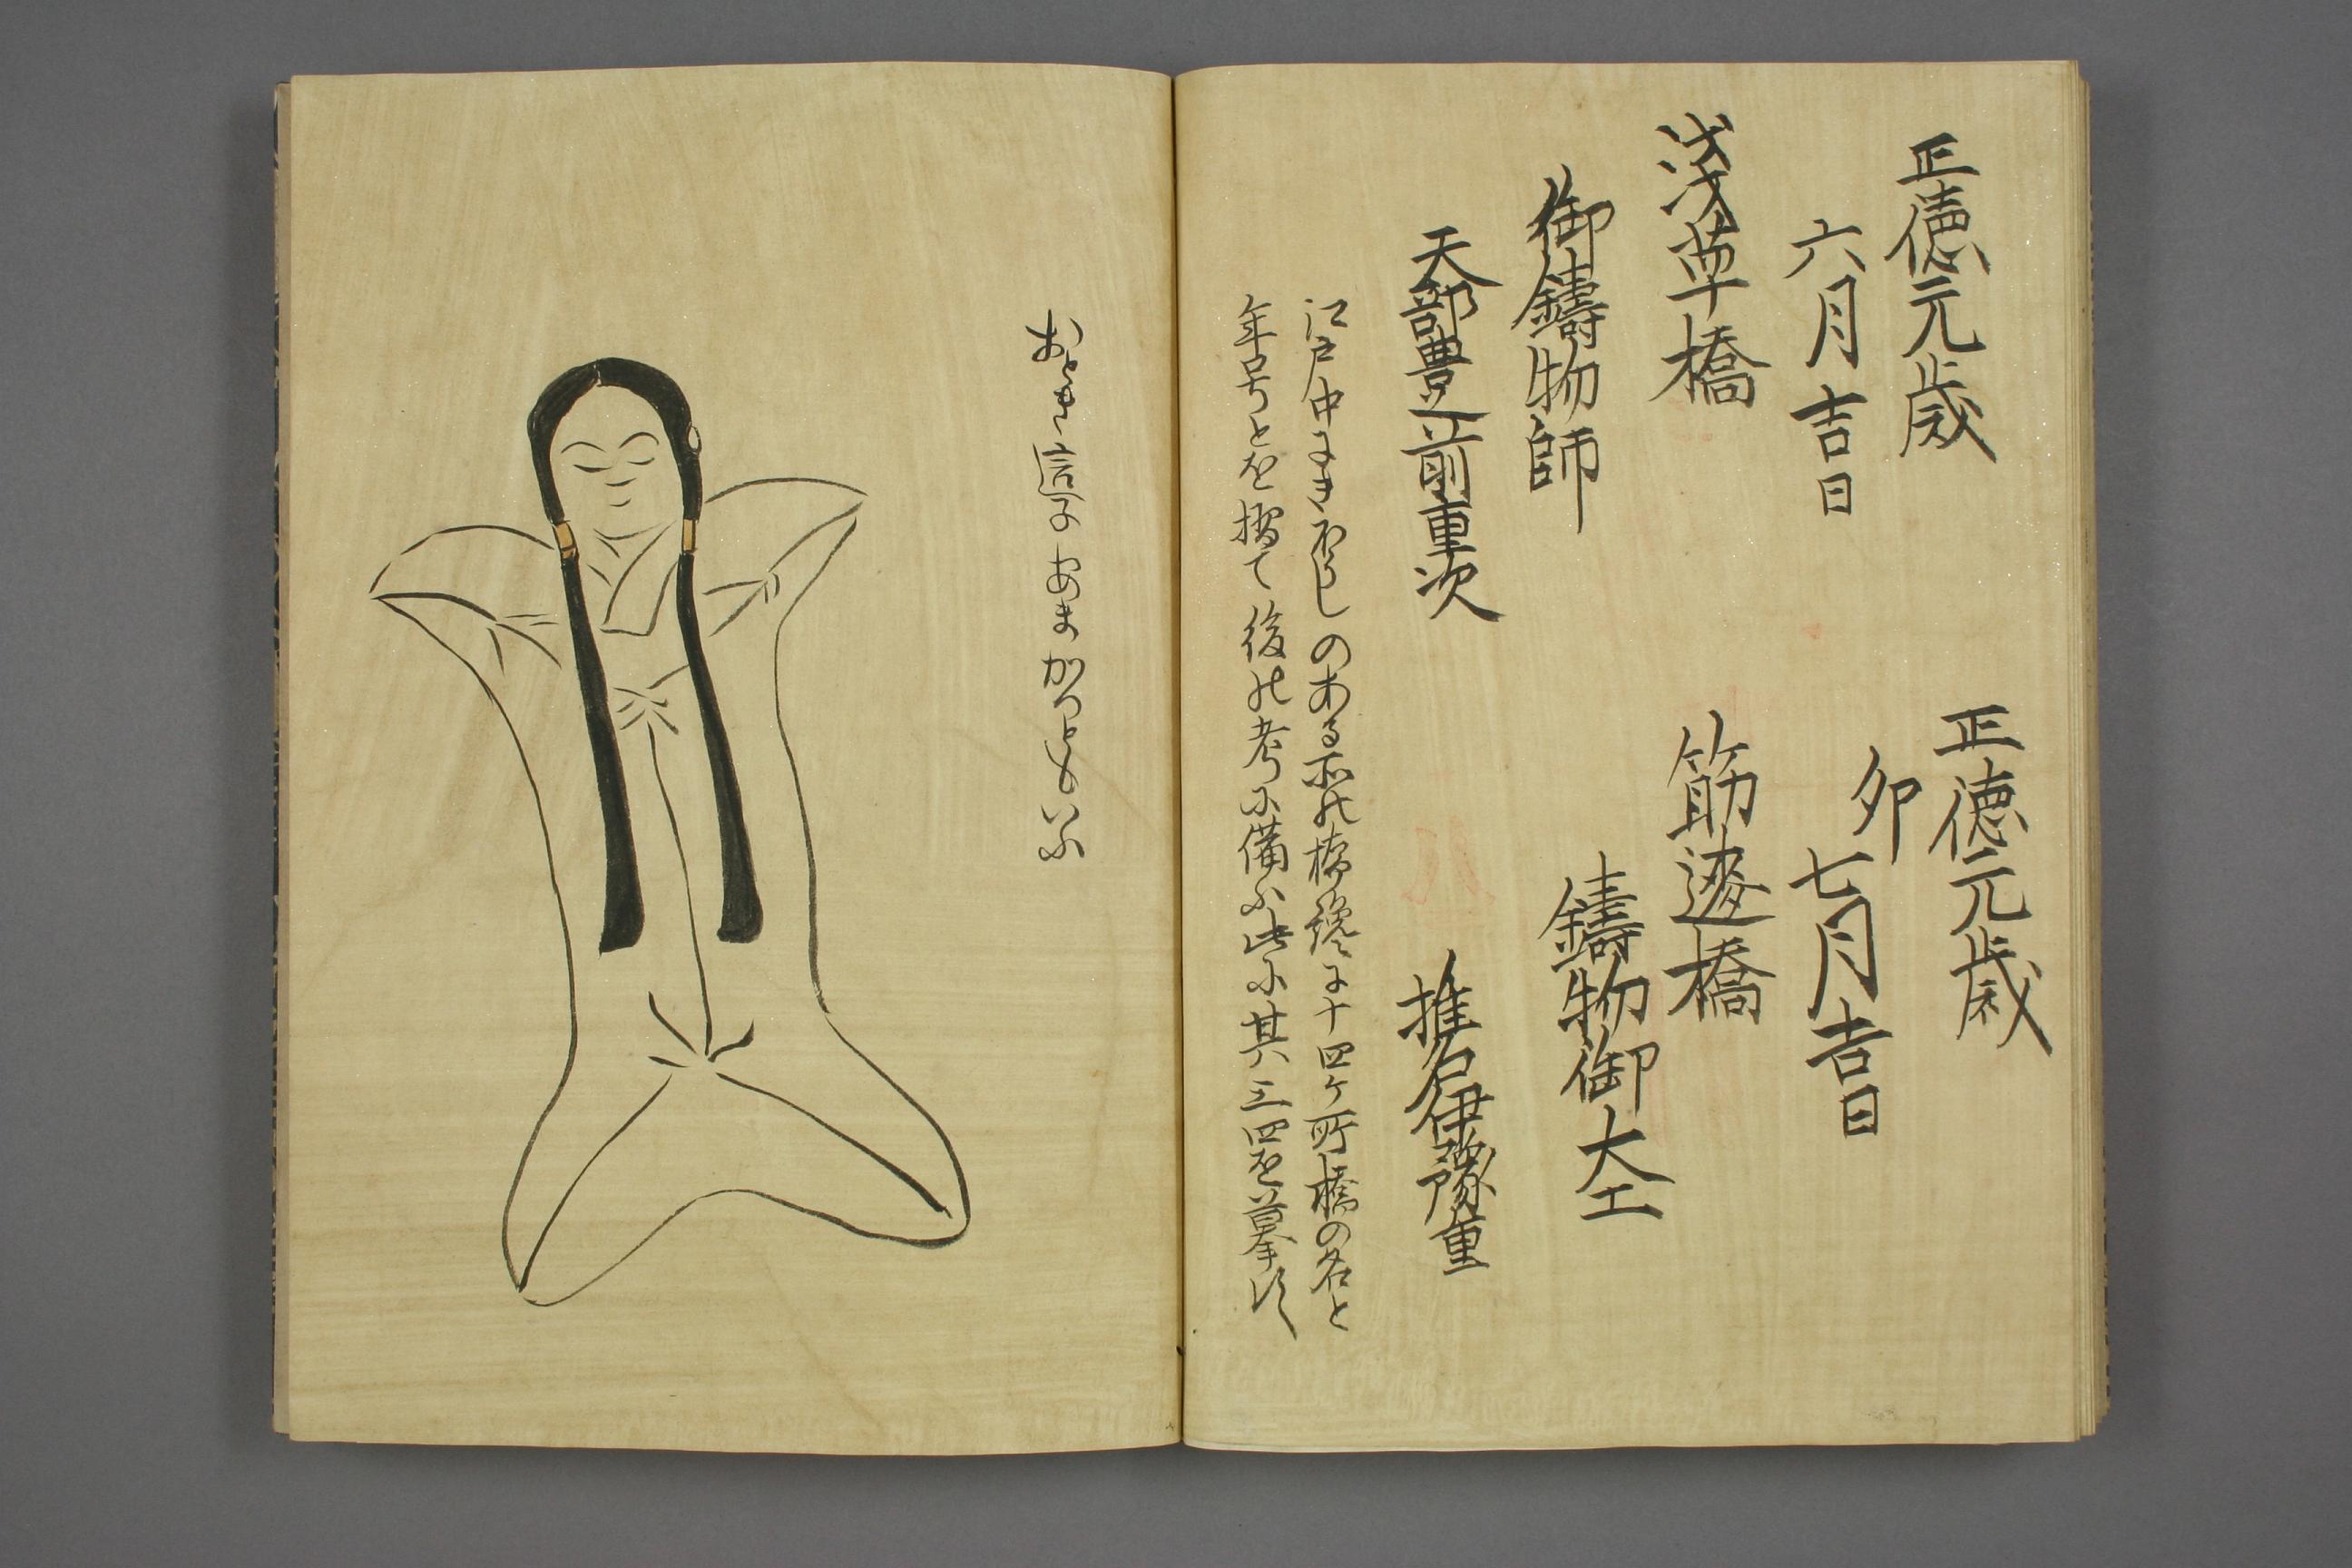 正徳元歳
六月吉日
浅草橋
御鋳物師
天部豊前重次
正徳元歳
卯
七月吉日
筋違橋
鋳物御大工
推名伊豫重
江戸中にきぼうしのある所の橋纔に十四ヶ所橋の名と
年号とを摺て後の考に備ふ此に其三四を摹す
おとぎ這子あまがつともいふ